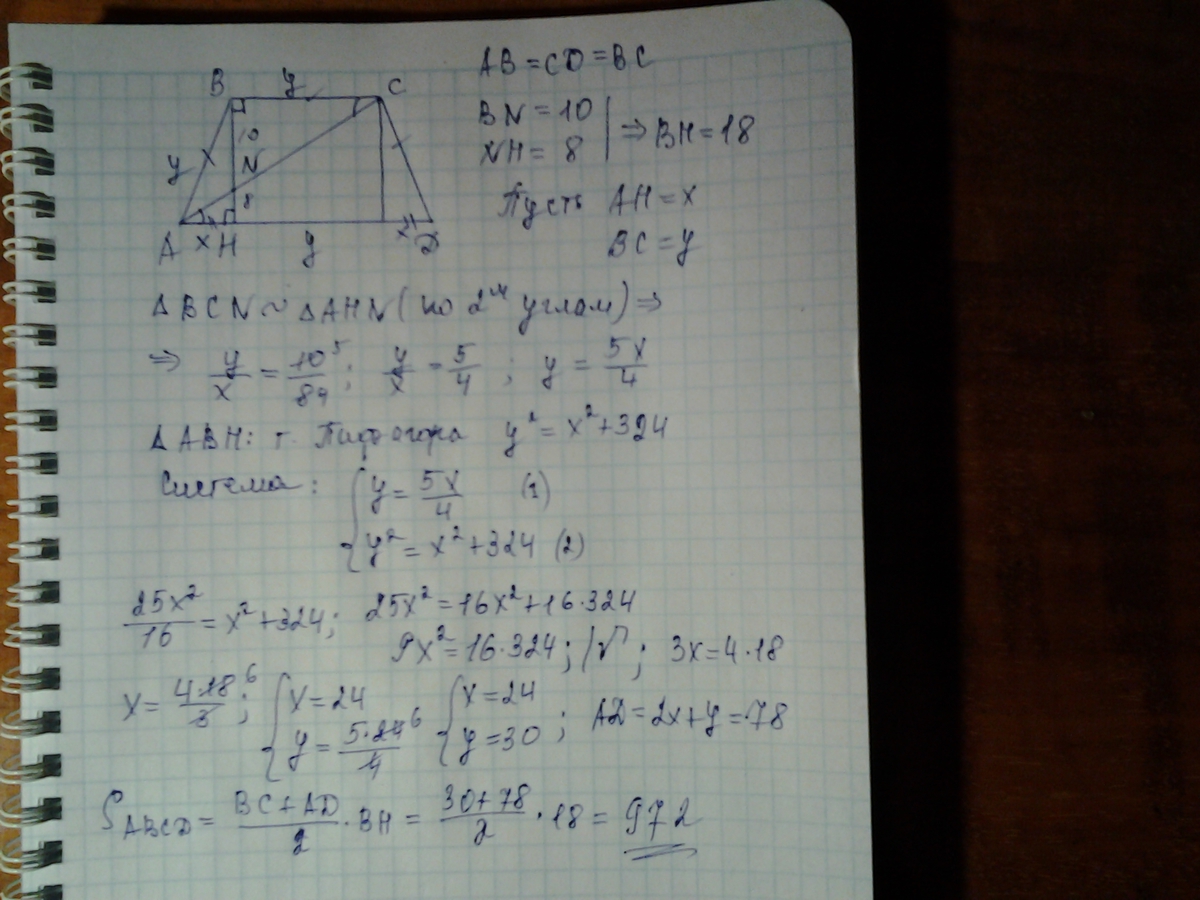 B y C
10
N
y
8
A x H y x D
AB = CD = BC
BN = 10
NH = 8 | ⇒ BH = 18
Пусть AH = x
BC = y
Δ BCN ~ Δ AHN (по 2м углам) ⇒
⇒ y/x = 10⁵/84; y/x = 5/4; y = 5x/4
Δ ABH: т. Пифагора y² = x² + 324
Система: { y = 5x/4 (1)
y² = x² + 324 (2)
25x²/16 = x² + 324; 25x² = 16x² + 16·324
9x² = 16·324; /√; 3x = 4·18
x = 4·18⁶/3; { x = 24 { x = 24
y = 5·24⁶/4 y = 30; AD = 2x + y = 78
S ABCD = (BC + AD)/2 · BH = (30 + 78)/2 · 18 = 972